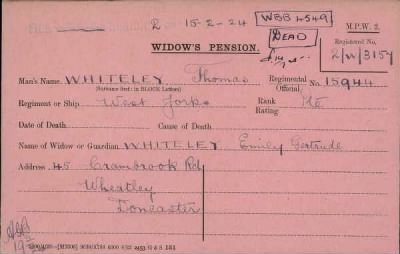 2 15-2-24 WBB 4549 M.P.W. 2.
DEAD Registered No.
WIDOW'S PENSION. 2/W/3157
Man's Name WHITELEY Thomas Regimental Official No. 15944
(Surname first: in BLOCK Letters)
Regiment or Ship West Yorks Rank Rating Pte
Date of Death Cause of Death
Name of Widow or Guardian WHITELEY Emily Gertrude
Address 45 Crambrook Rd
Wheatley
Doncaster